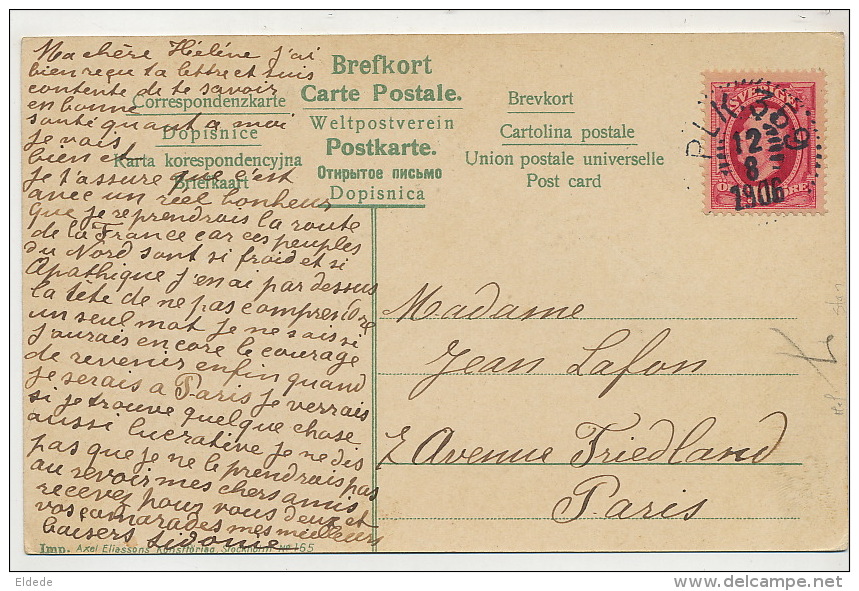 Ma chère Hélène j'ai
bien reçu ta lettre et suis
contente de te savoir
en bonne
santé quant a moi
je vais
bien et
je t'assure que c'est
avec un réel bonheur
que je reprendrais la route
de la France car ces peuples
du Nord sont si froid et si
Apathique j'en ai par dessus
la tête de ne pas comprendre
un seul mot je ne sais si
j'aurais encore le courage
de revenir enfin quand
je serais a Paris je verrais
si je trouve quelque chose
aussi lucrative je ne dis
pas que je ne le prendrais pas
au revoir mes chers amis
recevez pour vous deux et
vos camarades mes meilleurs
baisers Sidonie
Brefkort
Correspondenzkarte Carte Postale. Brevkort
Dopisnice Weltpostverein Cartolina postale
Karta korespondencyjna Postkarte. Union postale universelle
Briefkaart Открытое письмо Post card
Dopisnica
SVERIGE
ÖRE
PLK 389
12
8
1906
Madame
Jean Lafon
7 Avenue Friedland
Paris
Imp. Axel Eliassons Konstförlag, Stockholm No 165
Eldede
delcampe.net